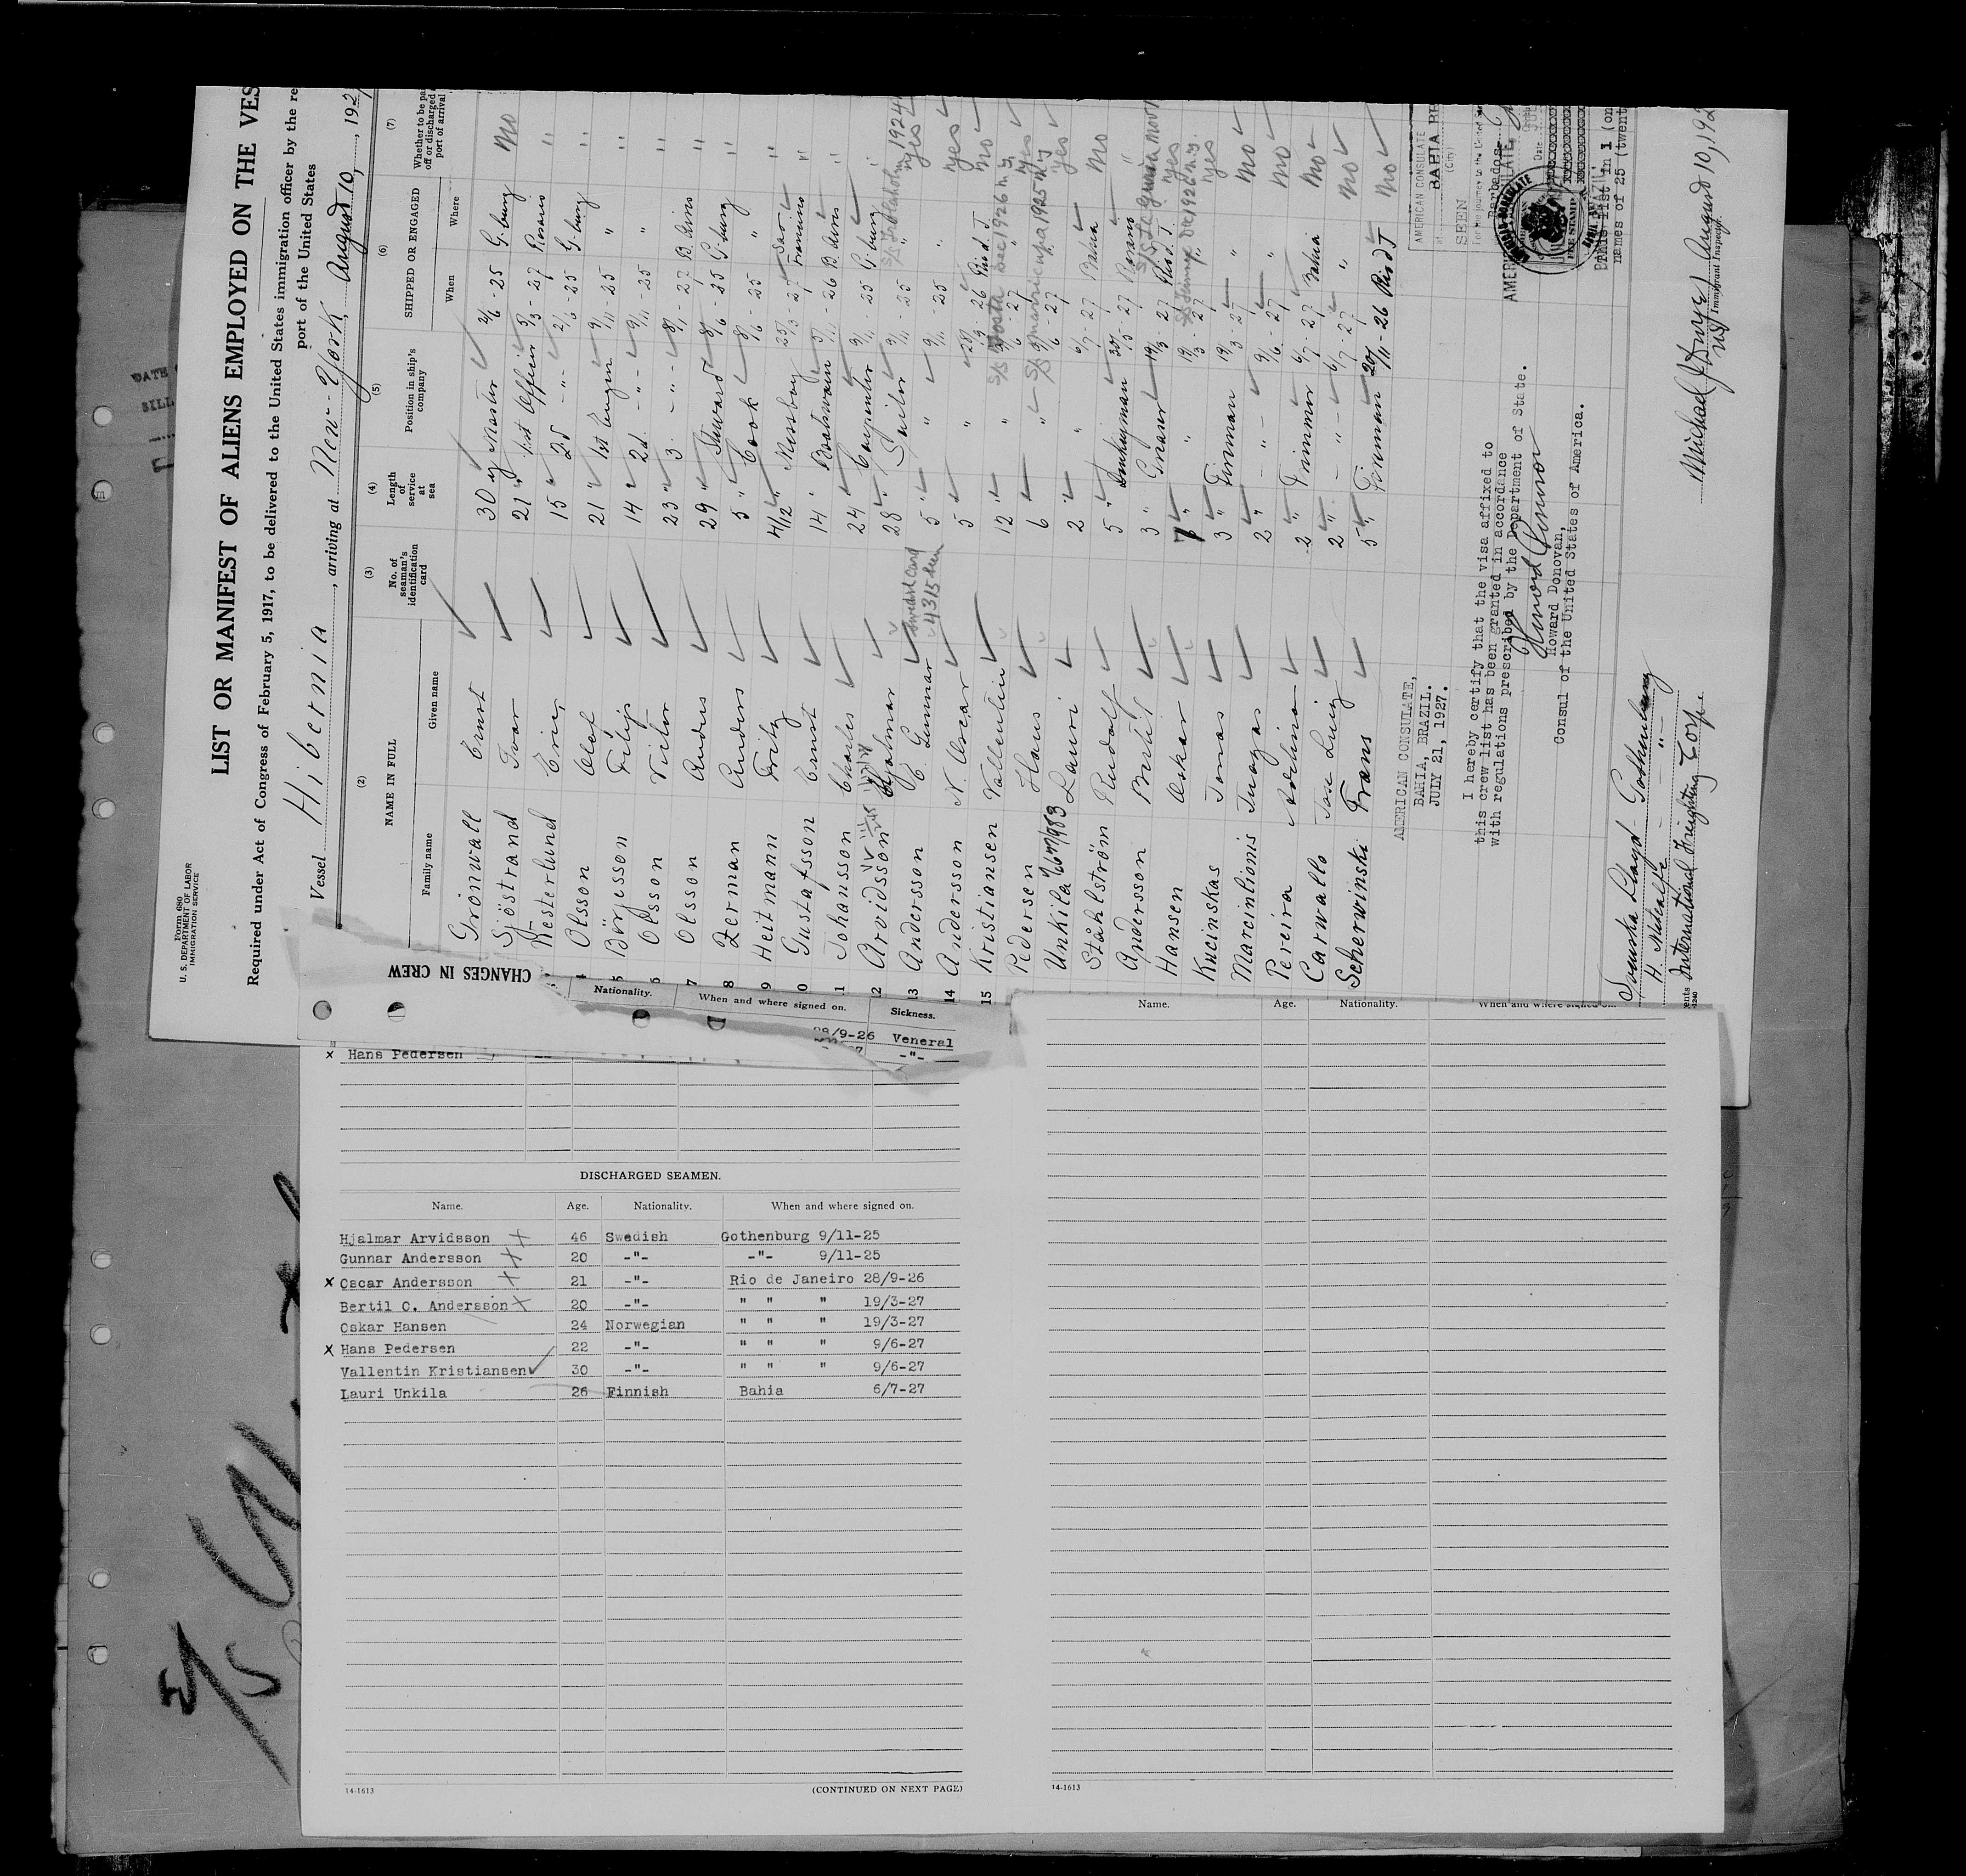 Form 680
U. S. DEPARTMENT OF LABOR
IMMIGRATION SERVICE
LIST OR MANIFEST OF ALIENS EMPLOYED ON THE VES
Required under Act of Congress of February 5, 1917, to be delivered to the United States immigration officer by the re
port of the United States
Vessel Hibernia, arriving at New-York, August 10, 192
(2) (3) (4) (5) (6) (7)
NAME IN FULL
Family name Given name
No. of seaman's identification card
Length of service at sea
Position in ship's company
SHIPPED OR ENGAGED
When Where
Whether to be pa
off or discharged
port of arrival
Grönwall Ernst 30 y Master 2/6 - 25 G.burg No
Sjöstrand Ivar 21 " 1st Officer 5/3 - 27 Rosario "
Westerlund Eric 15 " 2d -"- 2/6 - 25 G.burg "
Olsson Olof 21 " 1st Engin 9/11 - 25 " "
5 Börjesson Filip 14 " 2d. -"- 9/11 - 25 " "
6 Olsson Victor 23 " 3. -"- 8/1 - 27 B. Aires "
7 Olsson Anders 29 " Steward 8/6 - 25 G.burg "
8 Zerman Anders 5 " Cook 8/6 - 25 " "
9 Heitmann Fritz 4/12 " Messboy 25/3 - 27 Sao Francisco "
0 Gustafsson Ernst 14 " Boatswain 5/11 - 26 B. Aires "
11 Johansson Charles 24 " Carpenter 9/11 - 25 G.burg "
12 Arvidsson Hjalmar 28 " Sailor 9/11 - 25 " yes
13 Andersson C. Gunnar 5 " " 9/11 - 25 " yes
14 Andersson N. Oscar 5 " 28/9 - 26 Rio d. J. no
15 Kristiansen Vallentin 12 " " 9/6 - 27 " yes
Pedersen Hans 6 " " 9/6 - 27 " yes
Unkila Lauri 2 " " 6/7 - 27 Bahia No
Ståhlström Rudolf 5 " Donkeyman 30/5 - 27 Rosario "
Andersson Bertil 3 " Greaser 19/3 - 27 Rio d. J. yes
Hansen Oskar 7 " " 19/3 - 27 " yes
Kucinskas Jonas 3 " Firman 19/3 - 27 " No
Marcinlionis Juozas 2 " -"- 9/6 - 27 " No
Pereira Adelino 2 " Trimmer 6/7 - 27 Bahia No
Carwallo Jose Luiz 2 " -"- 6/7 - 27 " No
Scherwinski Frans 5 " Firman 20/11 - 26 Rio d J No
AMERICAN CONSULATE,
BAHIA, BRAZIL.
JULY 21, 1927.
I hereby certify that the visa affixed to
this crew list has been granted in accordance
with regulations prescribed by the Department of State.
Howard Donovan
Howard Donovan,
Consul of the United States of America.
AMERICAN CONSULATE
BAHIA BR
(City)
SEEN
For the journey to the United
Barbados
This list in 1 (on
names of 25 (twent
Svenska Lloyd - Gothenburg
H. Metcalfe - " -
International Freighting Corp.
August 10, 192
Immigrant Inspector.
CHANGES IN CREW
Nationality. When and where signed on. Sickness.
28/9-26 Veneral
-"-
x Hans Pedersen
DISCHARGED SEAMEN.
Name. Age. Nationality. When and where signed on.
Hjalmar Arvidsson 46 Swedish Gothenburg 9/11-25
Gunnar Andersson 20 -"- -"- 9/11-25
x Oscar Andersson 21 -"- Rio de Janeiro 28/9-26
Bertil O. Andersson 20 -"- " " " 19/3-27
Oskar Hansen 24 Norwegian " " " 19/3-27
x Hans Pedersen 22 -"- " " " 9/6-27
Vallentin Kristiansen 30 -"- " " " 9/6-27
Lauri Unkila 26 Finnish Bahia 6/7-27
14-1613 (CONTINUED ON NEXT PAGE)
Name. Age. Nationality. When and where signed on.
14-1613